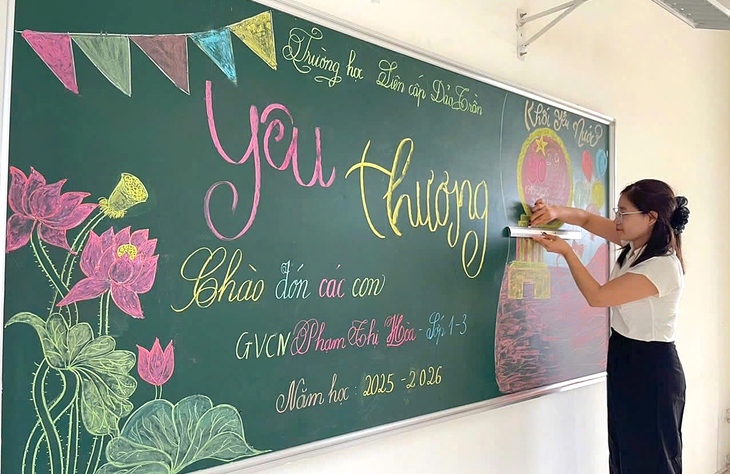 Trường học Tiên cấp Đảo Trần
Khối Yêu Nước
Yêu thương
Chào đón các con
GVCN Phạm Thị Hòa - Lớp 1-3
Năm học: 2025-2026